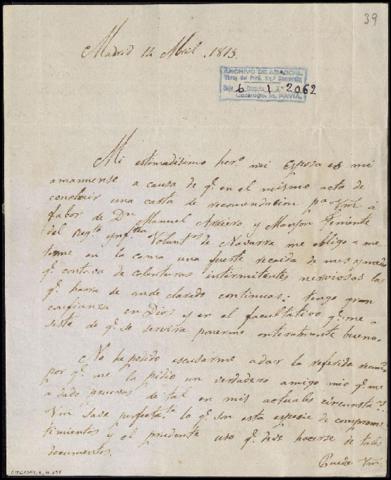 39
Madrid 12 Abril, 1813.
ARCHIVO DE ABASCAL
6 1 2062
Mi estimadisimo herno mi Esposa es mi
amanuense a causa de qe en el mismo acto de
concluir una carta de recomendacion pa Vm á
fabor de Dn Manuel y Monzon Teniente
del Regto Ynfta Voluntos de Navarra me obligo a me
terme en la cama una fuerte recaida de mis
qe continua de calenturas intermitentes nerviosas las
qe haria de aver clarado continuas; tengo gran
confianza en Dios y en el facultativo qe me
asiste de qe se servira ponerme enteramente bueno.
No he podido escusarme a dar la referida recomn
por qe me la pidio un verdadero amigo mio qe me
a dado pruevas de tal en mis actuales circunstas
Vm sabe perfectate lo qe son esta especie de compromi
timientos y el prudente uso qe debe hacerse de tales
documentos.
Puede Vm